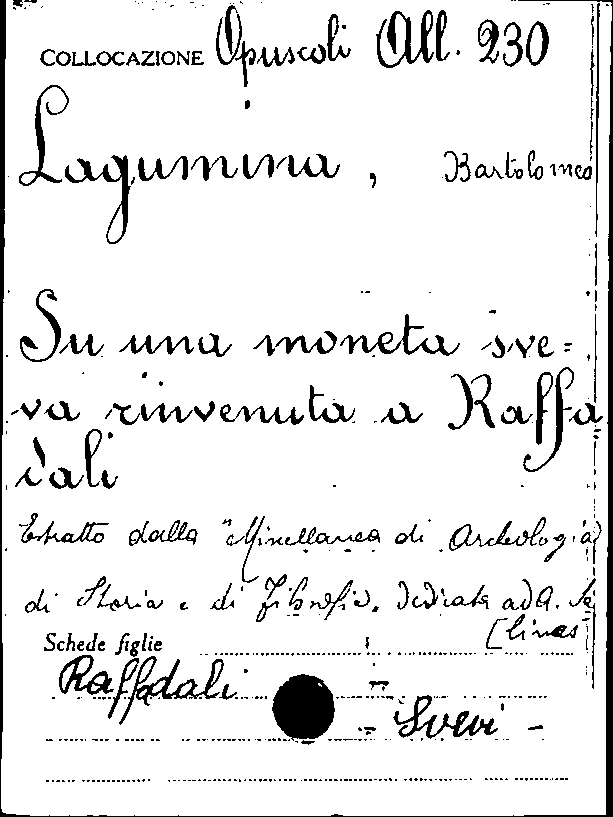 COLLOCAZIONE Opuscoli All. 230
Lagumina, Bartolomeo
Su una moneta sve=
va rinvenuta a Raffa
dali
Estratto dalla "Miscellanea di Archeologia
di Storia e di Filosofia. Dedicata ad A. Sa
[linas
Schede figlie
Raffadali
- Svevi -